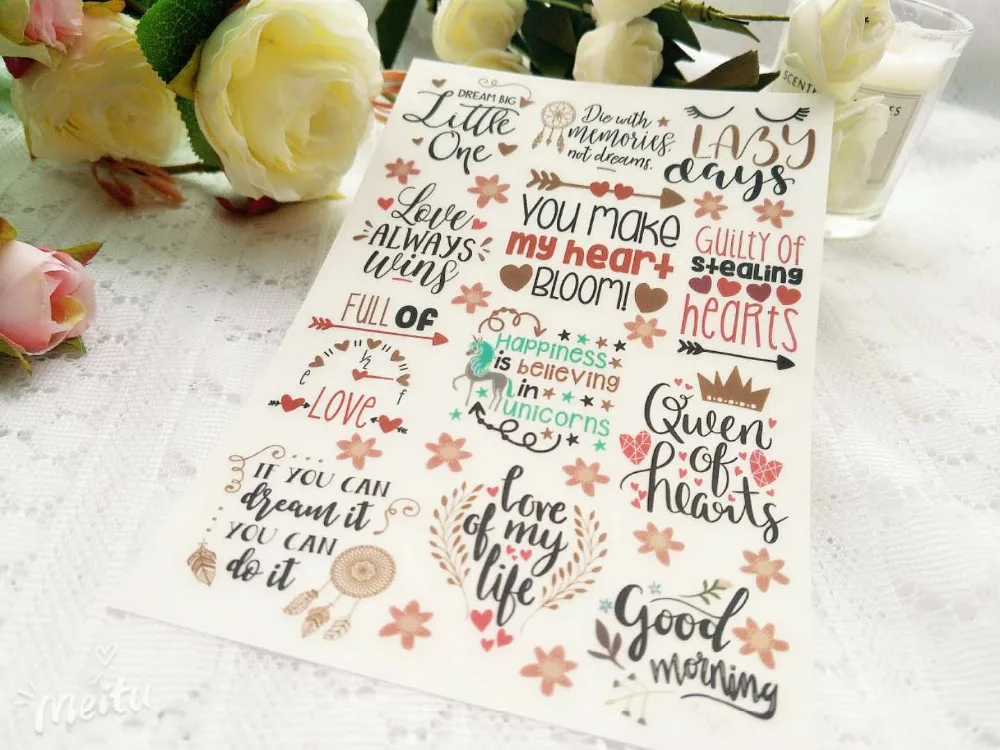 DREAM BIG
Little
One
Die with
memories,
not dreams.
LAZY
days
Love
ALWAYS
wins
YOU MAKE
my heart
BLOOM!
GUILTY OF
stealing
hearts
FULL OF
e ½ f
LOVE
Happiness
is believing
in
unicorns
Qween
of
hearts
IF YOU CAN
dream it
YOU CAN
do it
love
of my
life
Good
morning
meitu